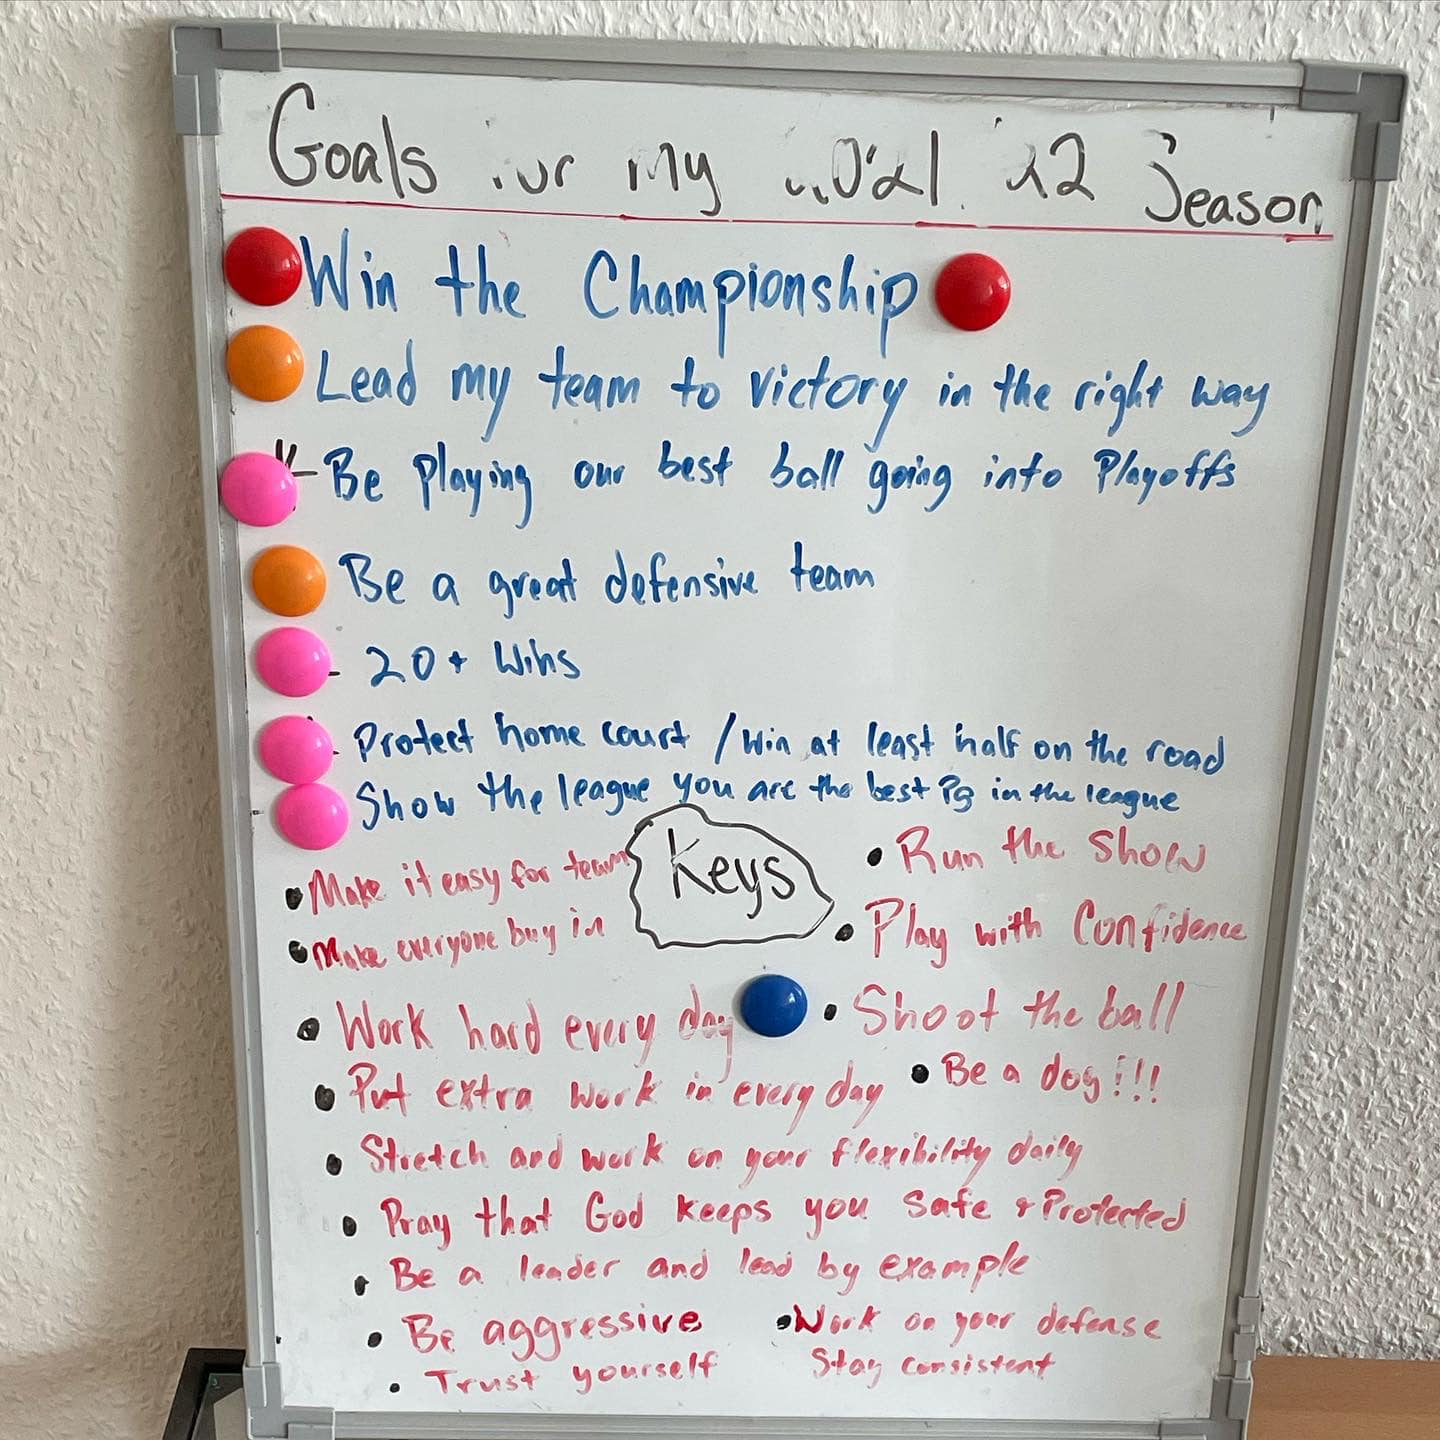 Goals for my 2021 22 Season
Win the Championship
Lead my team to victory in the right way
Be playing our best ball going into Playoffs
Be a great defensive team
- 20+ Wins
- Protect home court / win at least half on the road
Show the league you are the best Pg in the league
Keys
• Make it easy for team
• Make everyone buy in
• Run the show
• Play with Confidence
• Work hard every day
• Shoot the ball
• Put extra work in every day
• Be a dog!!!
• Stretch and work on your flexibility daily
• Pray that God keeps you safe + Protected
• Be a leader and lead by example
• Be aggressive
• Work on your defense
• Trust yourself
Stay consistent